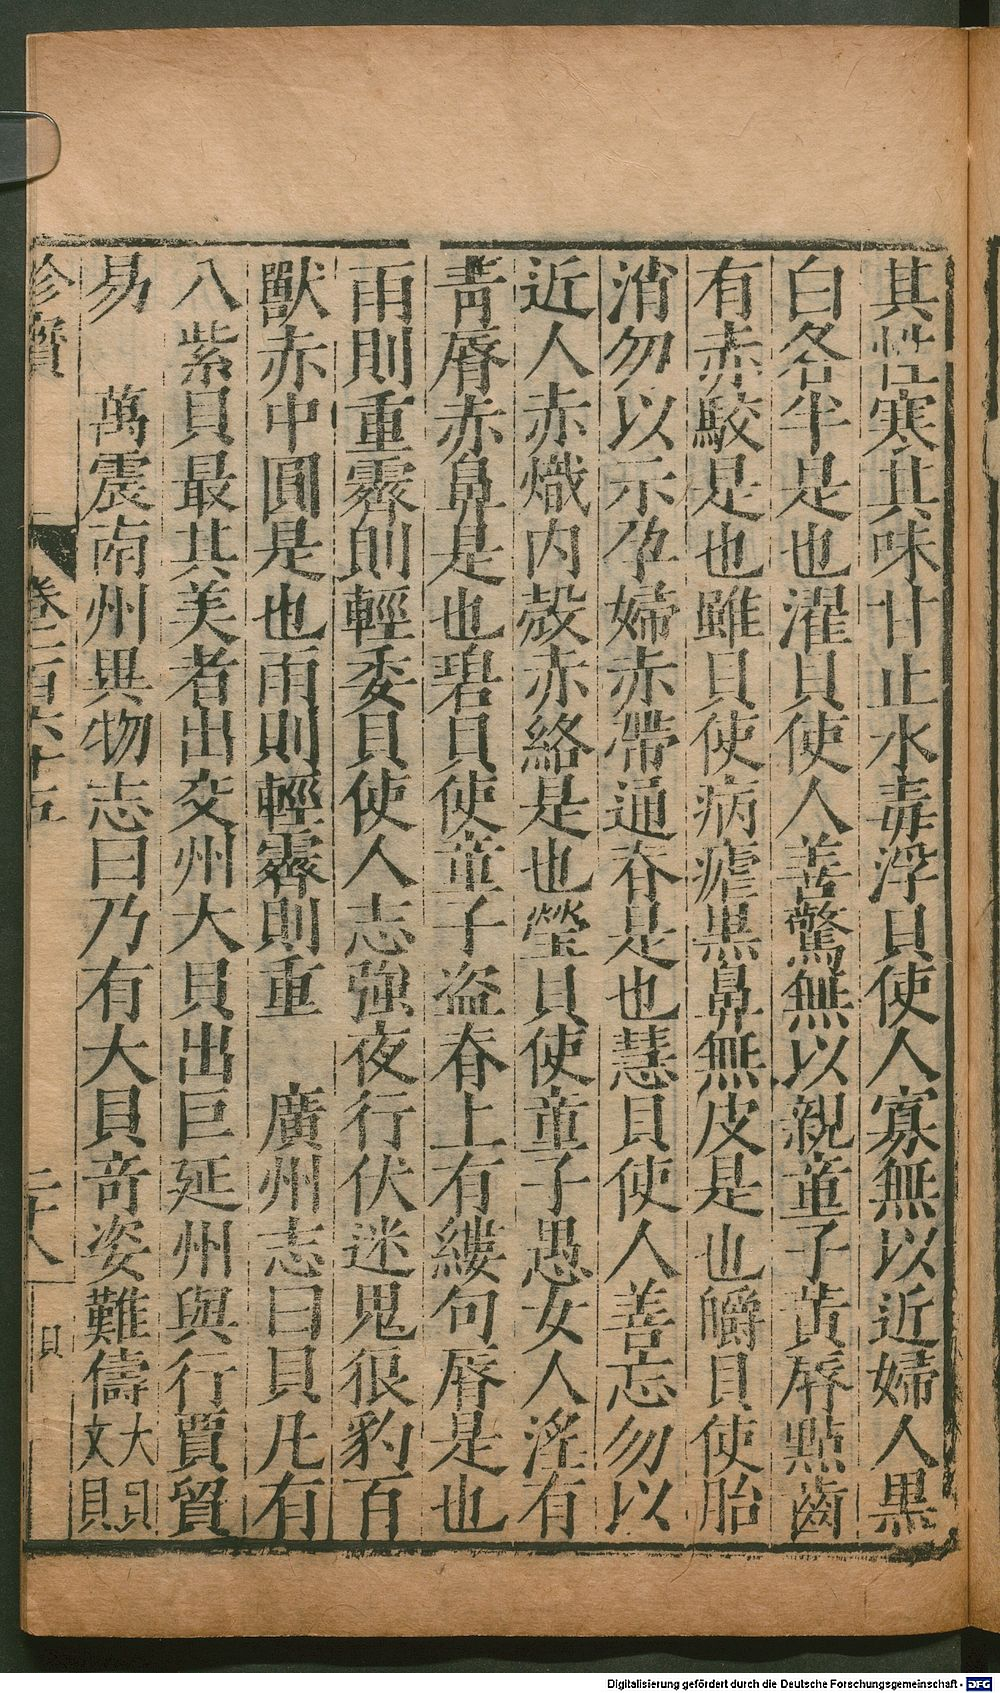 其性寒其味甘止水毒浮貝使人寡無以近婦人黒
白各半是也濯貝使人善驚無以親童子黃脣點齒
有赤駮是也雖貝使病瘧黒鼻無皮是也皭貝使胎
消勿以示孕婦赤帶通脊是也慧貝使人善忘勿以
近人赤熾内殼赤絡是也瑩貝使童子愚女人淫有
青脣赤鼻是也碧貝使童子盜脊上有縷句脣是也
雨則重霽則輕委貝使人志強夜行伏迷鬼狼豹百
獸赤中圓是也雨則輕霽則重　廣州志曰貝凡有
八紫貝最其美者出交州大貝出巨延州與行賈貿
易　萬震南州異物志曰乃有大貝竒姿難儔大貝文貝
珍寶
卷一百六十五
二十八
貝
Digitalisierung gefördert durch die Deutsche Forschungsgemeinschaft - DFG